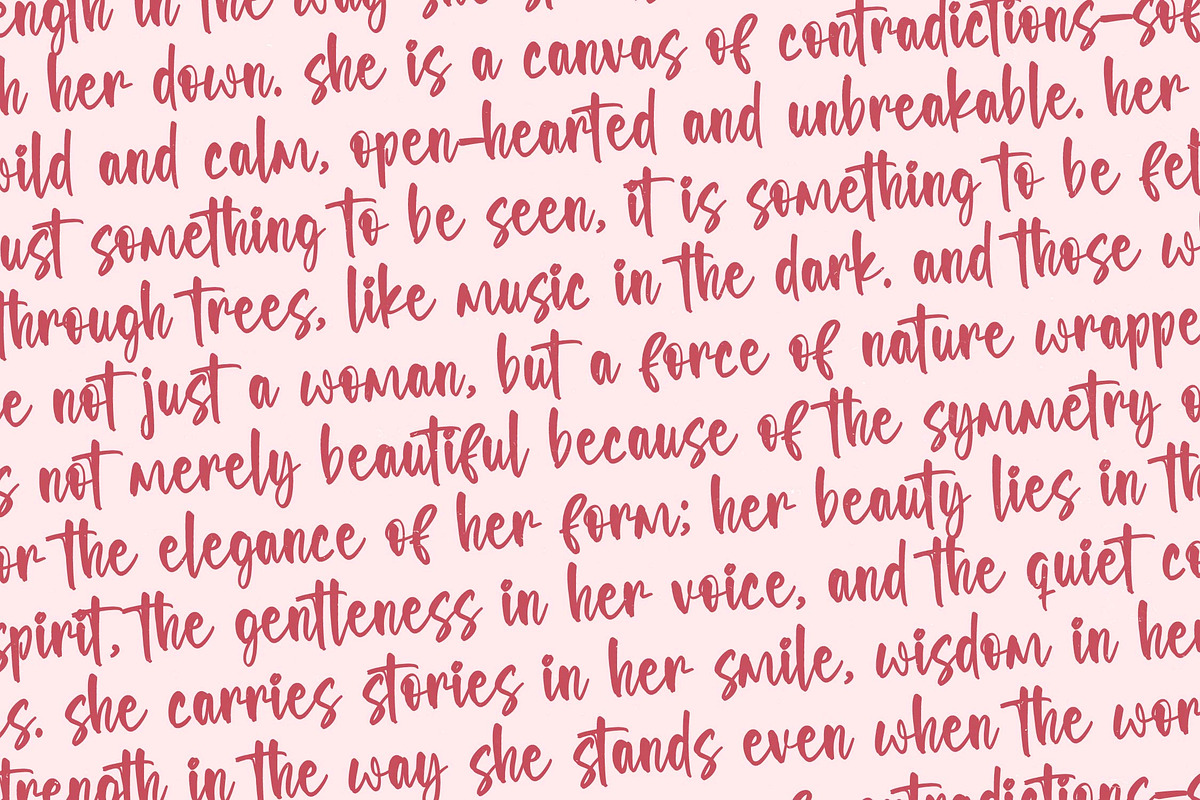 in the way she
her down. she is a canvas of contradictions—sof
wild and calm, open-hearted and unbreakable. her
just something to be seen, it is something to be fel
through trees, like music in the dark. and those w
e not just a woman, but a force of nature wrappe
s not merely beautiful because of the symmetry o
or the elegance of her form; her beauty lies in th
spirit, the gentleness in her voice, and the quiet co
s. she carries stories in her smile, wisdom in her
strength in the way she stands even when the wor
contradictions—s